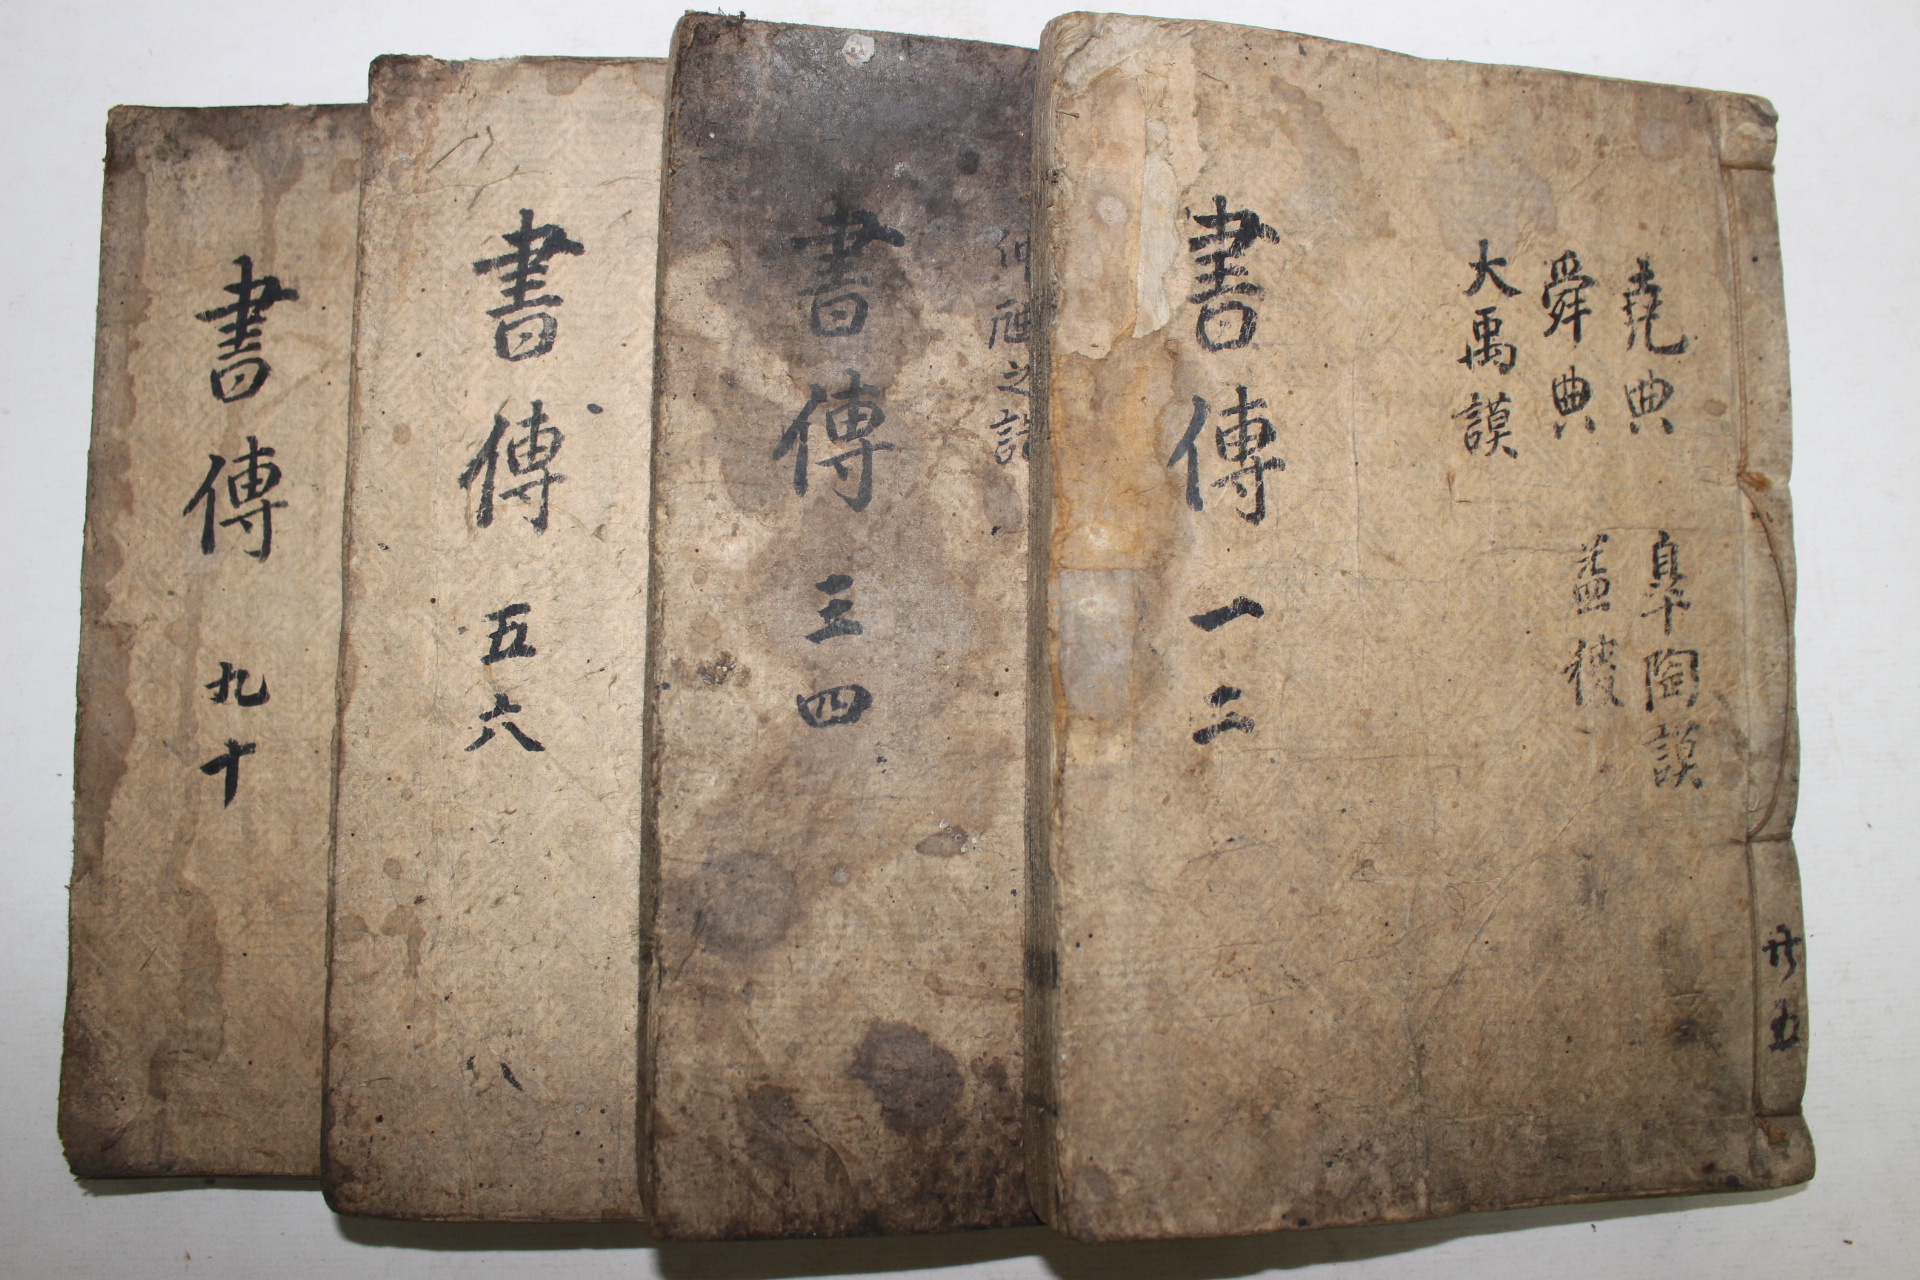 堯典
舜典
大禹謨
臯陶謨
益稷
書傳 一 二
共五
仲虺之誥
書傳 三 四
書傳 五 六
書傳 九 十